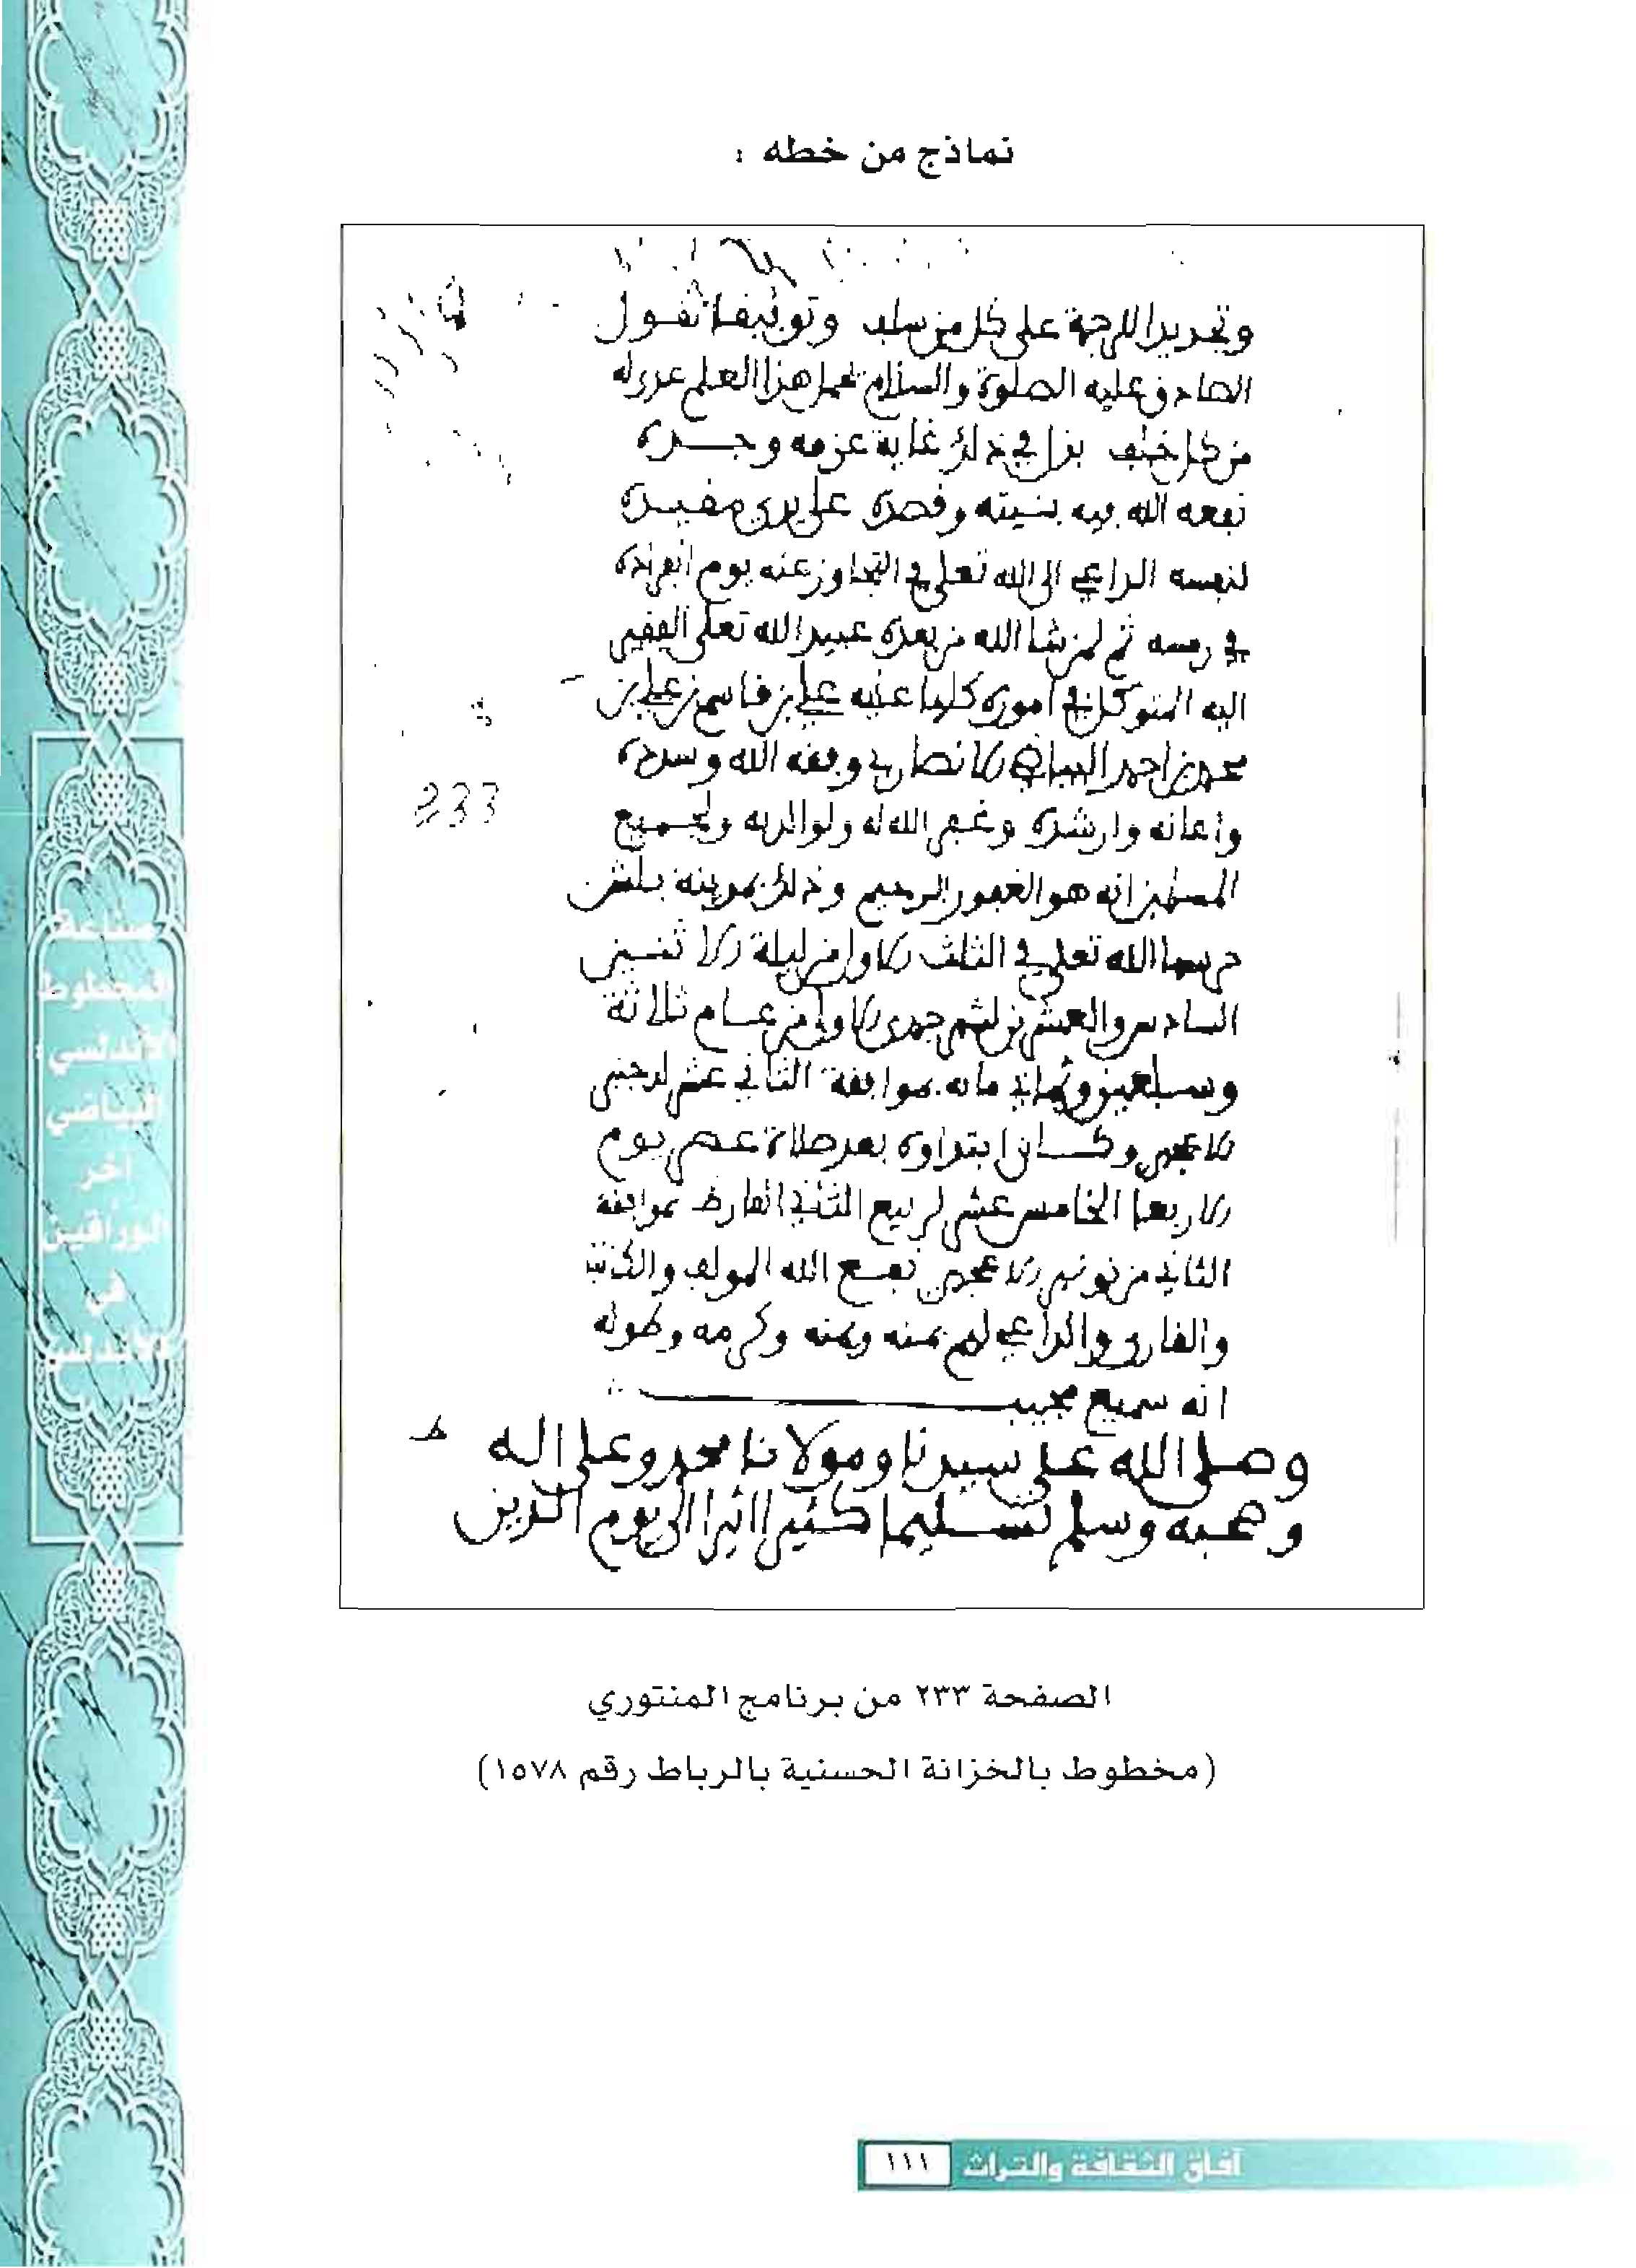 نماذج من خطه :
وتحريرا للرحمة على كل من سلف وتوثيقا نقول
الصادق عليه الصلوة والسلام يحمل هذا العلم عدوله
من كل خلف بذل في ذلك غاية عزمه وجده
نفعه الله فيه بنيته وقصده على يدي مقيده
لنفسه الراغب الى الله تعلى في التجاوز عنه يوم انفراده
في رمسه ثم لمن شا الله من بعده عبيد الله تعلى الفقير
اليه المتوكل في اموره كلها عليه علي بن قاسم بن علي بن
محمد بن احمد البياضي الانصاري وفقه الله وسدده
واعانه وارشده وغفر الله له ولوالديه ولجميع
المسلمين انه هو الغفور الرحيم وذلك بمدينة بلش
حرسها الله تعلى في الثلث الاول من ليلة الاثنين
السادس والعشرين لشهر جمدى الاولى من عام ثلاثة
وسبعين وثماني مائه موافقة الثاني عشر لدجنبر
الاعجمي وكان ابتداؤه بعد صلاة عصر يوم
الاربعا الخامس عشر لربيع الثاني الفارط بموافقة
الثاني من نونبر الاعجمي نفع الله المولف والكاتب
والقارئ والداعي لهم بمنه ويمنه وكرمه وطوله
انه سميع مجيب
وصلى الله على سيدنا ومولانا محمد وعلى اله
وصحبه وسلم تسليما كثيرا اثيرا الى يوم الدين
233
الصفحة ٢٣٣ من برنامج المنتوري
(مخطوط بالخزانة الحسنية بالرباط رقم ١٥٧٨)
صناعة
المخطوط
الأندلسي:
البياضي
آخر
الوراقين
في
الأندلس
آفاق الثقافة والتراث ١١١